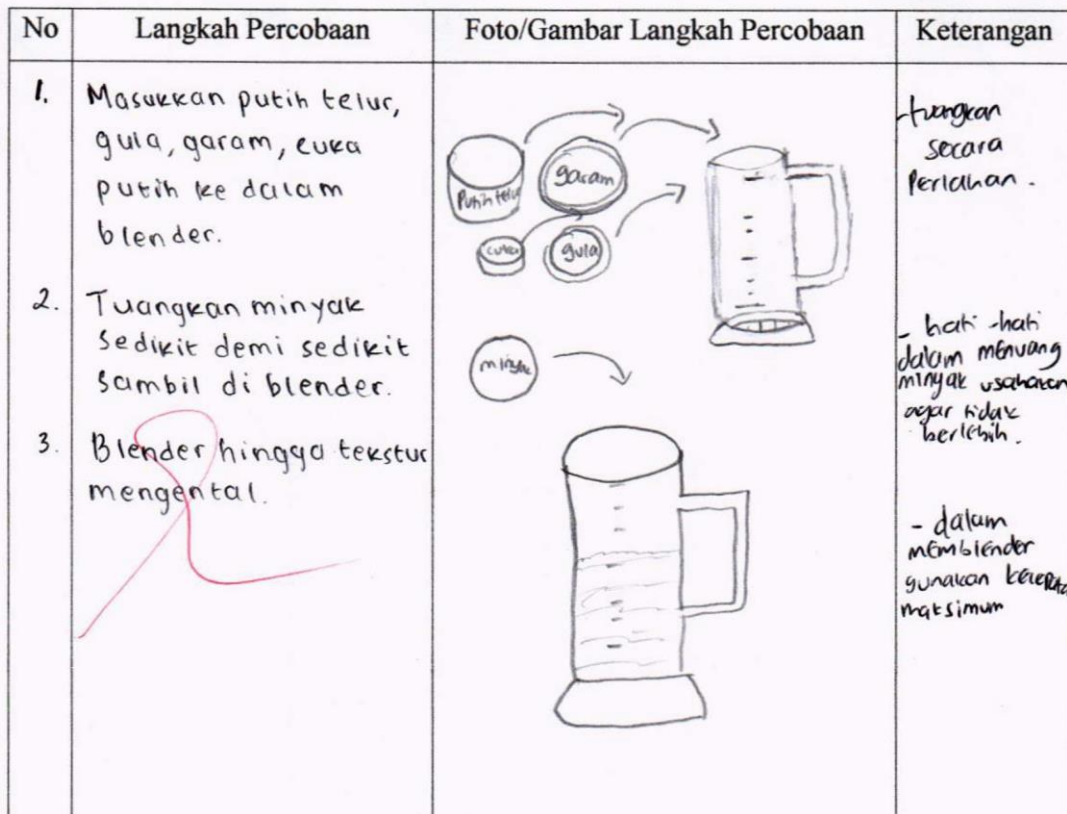 No Langkah Percobaan Foto/Gambar Langkah Percobaan Keterangan
1. Masukkan putih telur,
gula, garam, cuka
putih ke dalam
blender.
Putih telur
garam
cuka
gula
-tuangkan
secara
Perlahan.
2. Tuangkan minyak
sedikit demi sedikit
sambil di blender.
minyak
- hati-hati
dalam menuang
minyak usahakan
agar tidak
berlebih.
3. Blender hingga tekstur
mengental.
- dalam
memblender
gunakan
maksimum